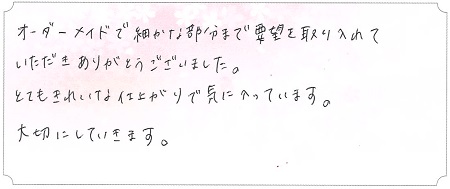 オーダーメイドで細かな部分まで要望を取り入れて
いただきありがとうございました。
とてもきれいな仕上がりで気に入っています。
大切にしていきます。